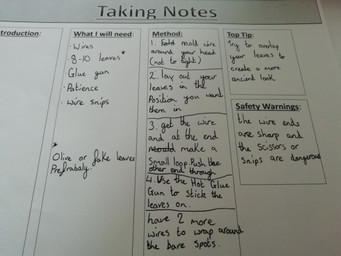 Taking Notes
troduction:
What I will need:
· Wires
· 8-10 leaves*
· Glue gun
· Patience
· wire snips
*
Olive or fake leaves
Prefrabaly.
Method:
1. mold wire
around your head
(not to tight)
2. lay out your
leaves in the
Position you want
them in
3. get the wire
and at the end
make a
Small loop. Push the
other end through
4. Use the Hot Glue
Gun to stick the
leaves on.
have 2 more
wires to wrap around
the bare spots.
Top Tip:
Try to overlap
your leaves to
create a more
ancient look
Safety Warnings:
the wire ends
are sharp and
the scissors or
snips are dangerous